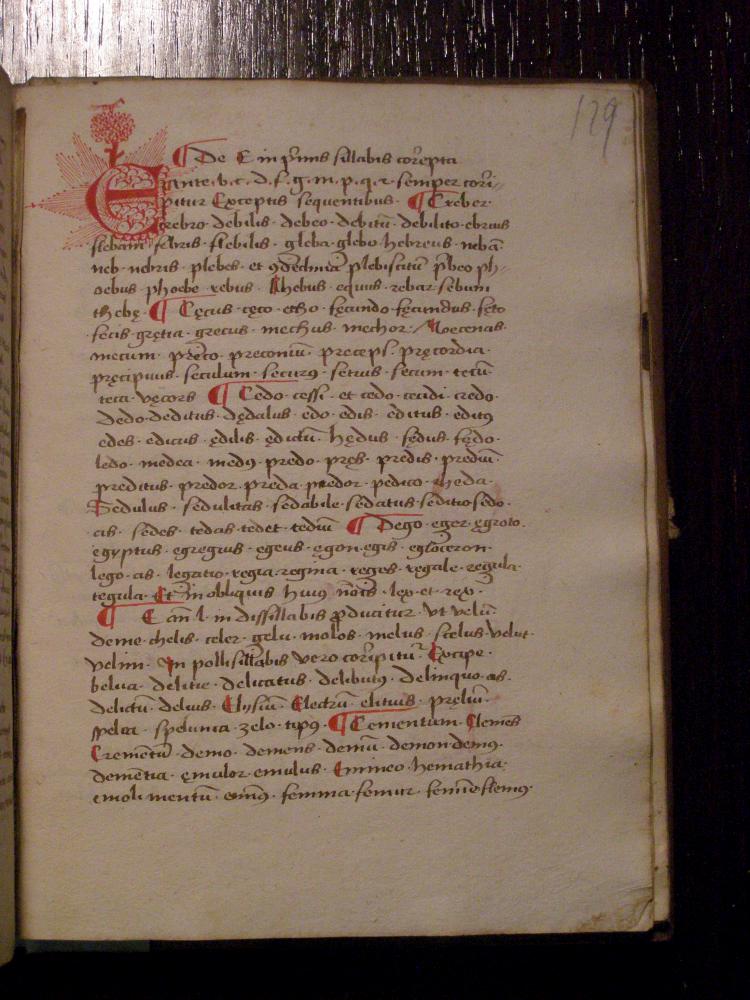 129
¶ De E in p̄mis sillabis cor̄epta
Eante. b. c. d. f. g. m. p. q. r. semper cori-
pitur Exceptis sequentibus. ¶ Creber
Crebro debilis. debeo. debitū. debilito. ebrius
flebam febris. flebilis. gleba. glebo. hebreus. nebā.
neb. nebris. plebes. et plebiscitū p̄beo ph-
oebus. phoebe. rebus. Rhebus. equus. rebar. sebum
thebę. ¶ Cęcus. cęco. fęcundo. fęcundus. fęto
fecis. gretia. grecus. mechus. mechor. Mecenas.
mecum. preco. preconiū. preceps. pręcordia.
pręcipuus. seculum. securꝰ. setius. secum. tecū
teca. vęcors ¶ Cedo. cessi. et cedo. cecidi. credo.
Dedo. deditus. dędalus. edo. edis. editus. editꝰ
edes. edicus. ędilis. ędictū. hędus. fędus. fędo.
ledo. medea. medꝰ. predo. pręs. predis. prediū.
preditus. predor. preda. predor. pedico. rheda.
Sedulus. sedulitas. sedabile. sedatus. seditio. sedo.
as. sedes. tedas. tedet. tediū ¶ Dego. eger. ęgroto.
egyptus. egregius. egeus. ęgon. egis. egloceron.
lego. as. legatio. regia. regina. reges. regale. regula.
tegula. Et in obliquis huiꝰ nōis. lex. et. rex.
¶ E an̄. l. in dissillabis ꝓducitur. Vt velū
deme. chelis. celer. gelu. molos. melus. scelus. velut.
velim. In pollisillabis vero cor̄ipitur. Excipe.
belua. delitie. delicatus. delibutꝰ. delinquo. as.
delictū. delius. Elysiū. Electrū. elitius. preliū.
spelea. spelunca. zelo. tipꝰ. ¶ Cementum. Clemēs
Crementū. demo. demens. demū. demon. demꝰ.
demētia. ęmulor. emulus. Emineo. hemathia.
emolimentū. femina. femur.